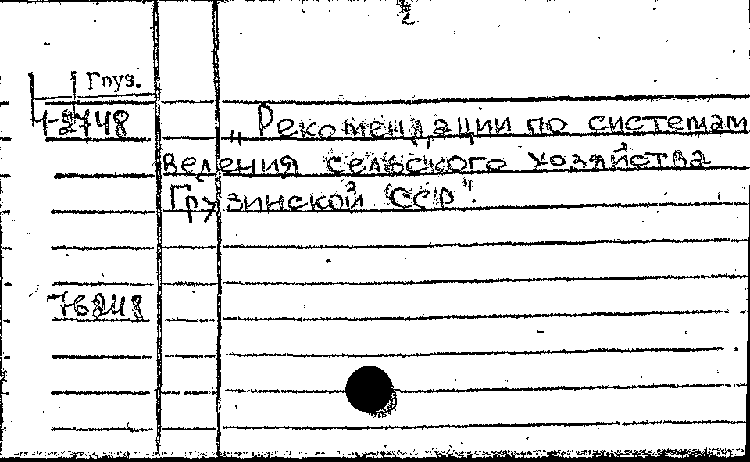 Груз.
4-2748
„Рекомендации по системам
ведения сельского хозяйства
Грузинской ССР".
76248